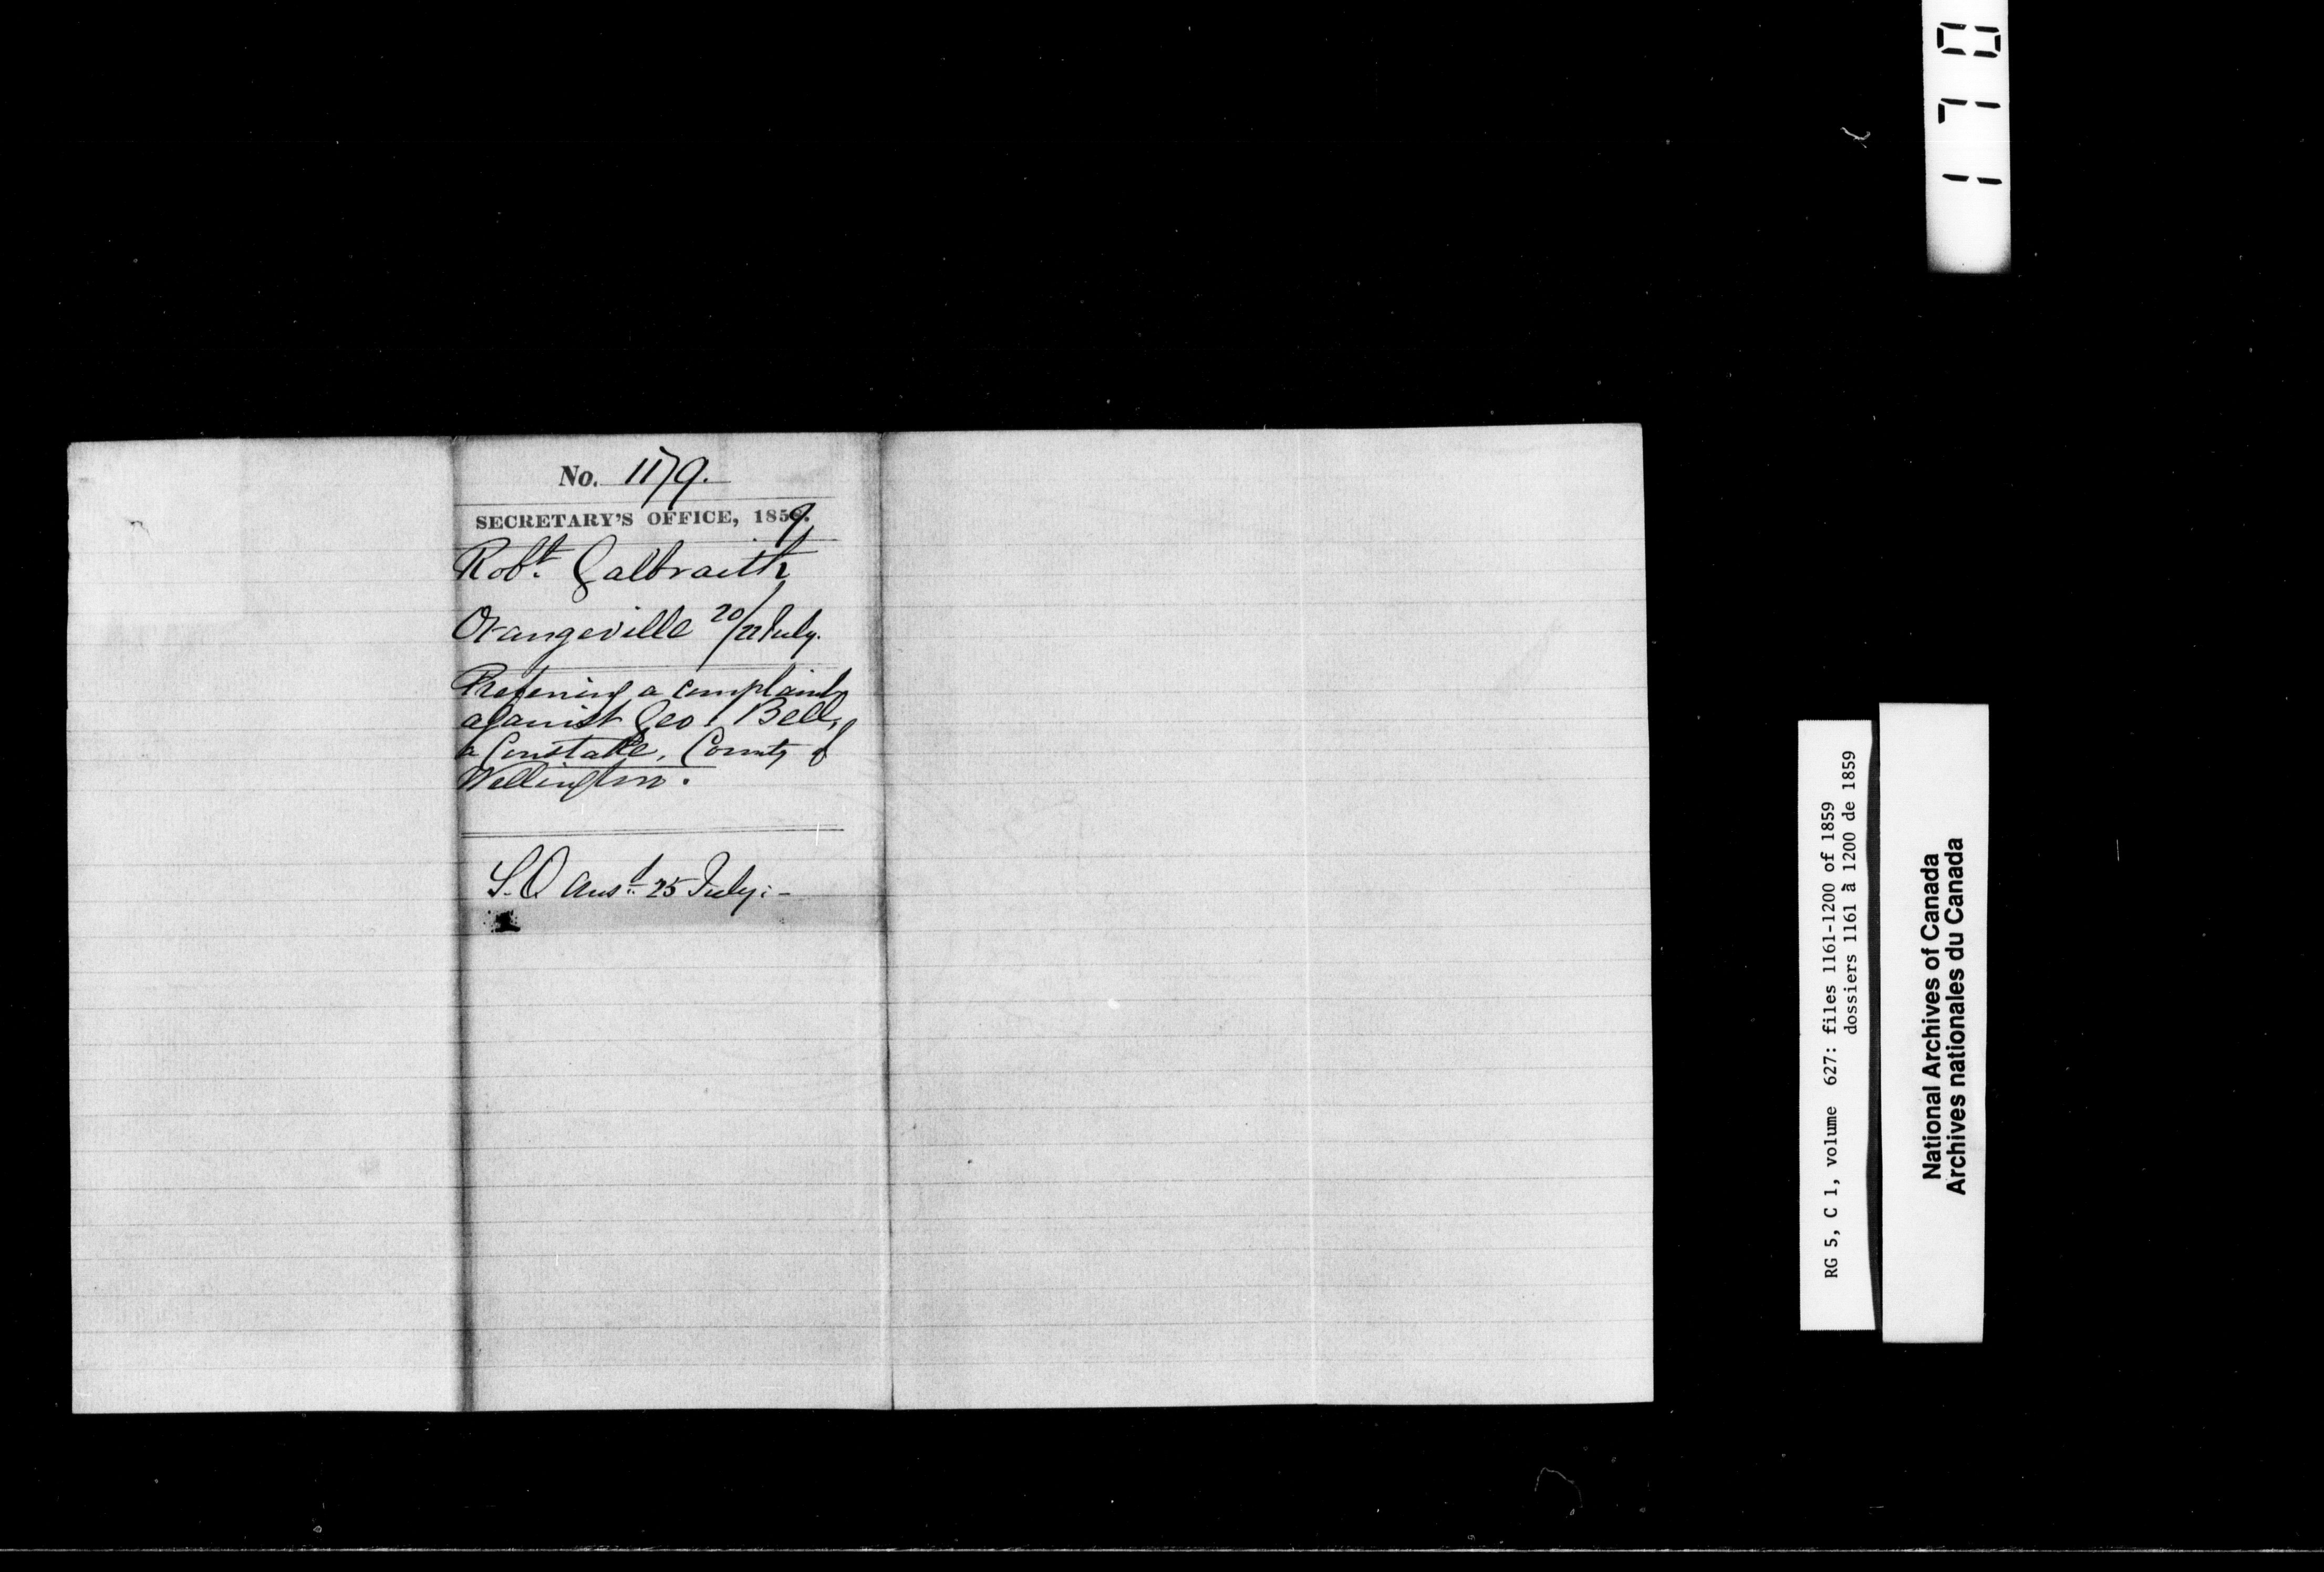 No. 1179.
SECRETARY'S OFFICE, 1859.
Robt. Galbraith
Orangeville 20/22 July.
Prefering a complaint
against Geo. Bell,
a Constable, County of
Wellington.
S.O ansd. 25 July:-
170
RG 5, C 1, volume 627: files 1161-1200 of 1859
dossiers 1161 à 1200 de 1859
National Archives of Canada
Archives nationales du Canada